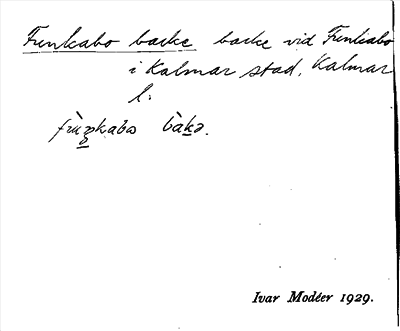 Funkabo backe backe vid Funkabo
i Kalmar stad, Kalmar
l.
Ivar Modéer 1929.